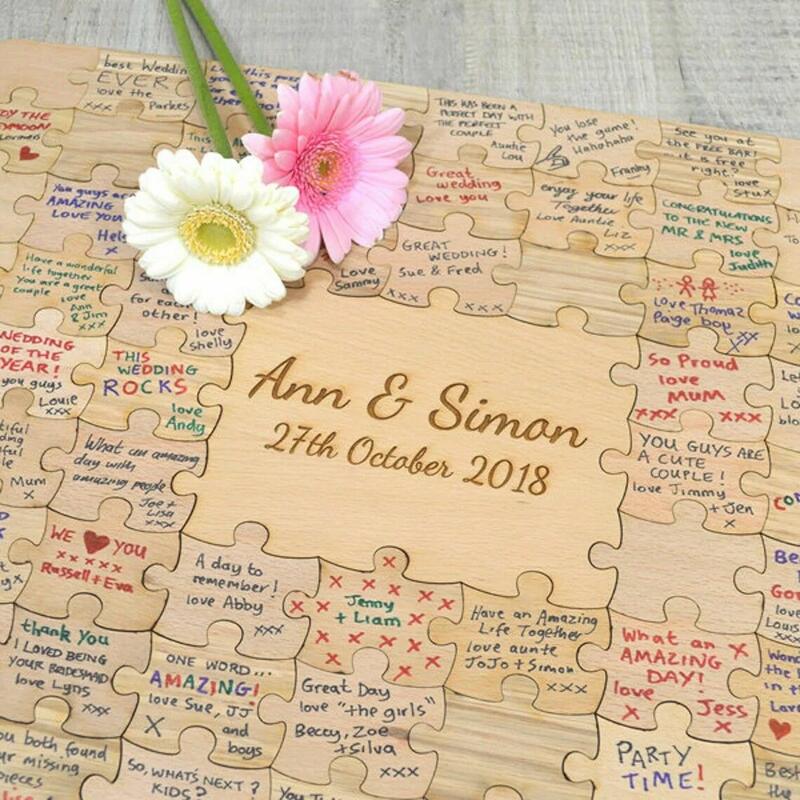 best Wedding
EVER
love the
xxx Parkes
this puz
THIS HAS BEEN A
PERFECT DAY WITH
THE PERFECT
COUPLE
Auntie
Lou
You lose
We game!
Hahahaha
Franky
See you at
the FREE BAR!
...it is free
right?
love
Stux
THE
This
You guys are
AMAZING
LOVE YOU
x
Great
wedding
Love you
enjoy your life
Together
Love Auntie
Liz
xxx
CONGRATULATIONS
TO THE NEW
MR & MRS
love
Judith
Have a wonderful
life together
You are a great
couple
love
Ann
& Jim
xxx
for each
other!
love
Shelly
Love
Sammy
GREAT
WEDDING!
Sue & Fred
xxxx
love Thomaz
Paige boy xx
xx
WEDDING
OF THE
YEAR!
you guys
Louie
xxx
THIS
WEDDING
ROCKS
love
Andy
Ann & Simon
27th October 2018
So Proud
love
MUM
xxx xxx
What an amazing
day with
amazing people
Joe +
Lisa
xxx
Mum
x
YOU GUYS ARE
A CUTE
COUPLE!
love Jimmy
+ Jen
x
WE ❤ YOU
xxxxx
Russell + Eva
A day to
remember!
love Abby
xxx
x x x x
Jenny
+ Liam
x x x x
Have an Amazing
Life Together
love aunte
JoJo + Simon
xxx
What an x
AMAZING
DAY!
love
x Jess
x
thank You
I LOVED BEING
YOUR BRIDESMAID
love Lyns
xxx
ONE WORD...
AMAZING!
love Sue, JJ
X and
boys
Great Day
love "the girls"
Beccy, Zoe
+ Silva
xxx
both found
missing
pieces
SO, WHATS NEXT?
KIDS?
You
PARTY
TIME!
Best
the